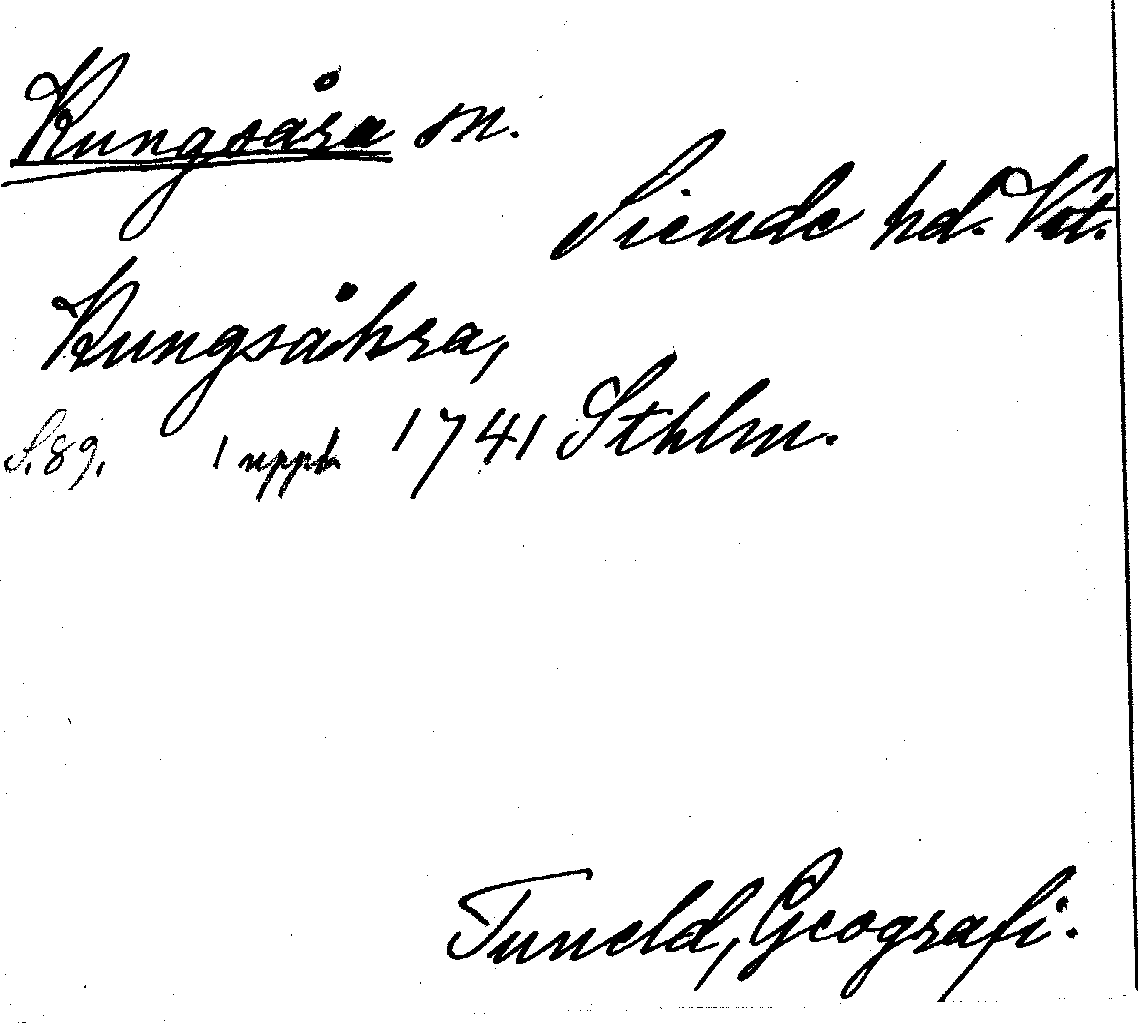 Kungsåra sn.
Siende hd. Vst.
Kungsåhra,
S. 89. 1 uppl. 1741 Sthlm.
Tuneld, Geografi.